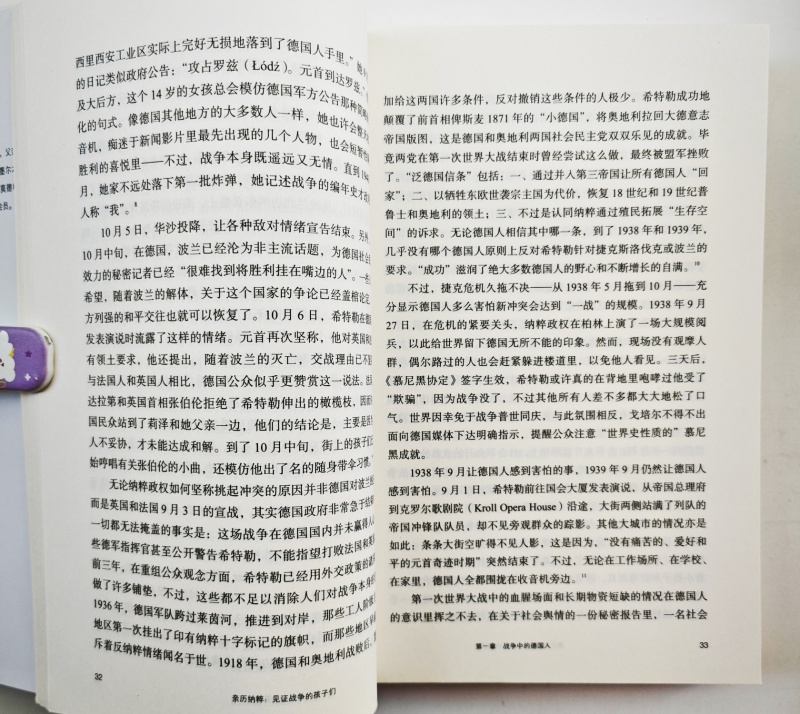 西里西安工业区实际上完好无损地落到了德国人手里。”她
的日记类似政府公告：“攻占罗兹（Łódź）。元首到达罗兹。”
及大后方，这个 14 岁的女孩总会模仿德国军方公告那种简
化的句式。像德国其他地方的大多数人一样，她也许会整
音机，痴迷于新闻影片里最先出现的几个人物，也会短暂
胜利的喜悦里——不过，战争本身既遥远又无情。直到19
月，她家不远处落下第一批炸弹，她记述战争的编年史才
人称“我”。⁸
10 月 5 日，华沙投降，让各种敌对情绪宣告结束。
10 月中旬，在德国，波兰已经沦为非主流话题，为德国社会
效力的秘密记者已经“很难找到将胜利挂在嘴边的人”。一些
希望，随着波兰的解体，关于这个国家的争论已经盖棺论定，
方列强的和平交往也就可以恢复了。10 月 6 日，希特勒在
发表演说时流露了这样的情绪。元首再次坚称，他对英国和
有领土要求，他还提出，随着波兰的灭亡，交战理由已不
与法国人和英国人相比，德国公众似乎更赞赏这一说法。
达拉第和英国首相张伯伦拒绝了希特勒伸出的橄榄枝，因而
国民众站到了莉泽和她父亲一边，他们的结论是，主要是
人不妥协，才未能达成和解。到了 10 月中旬，街上的孩子们
始哼唱有关张伯伦的小曲，还模仿他出了名的随身带伞习惯。
无论纳粹政权如何坚称挑起冲突的原因并非德国对波兰
而是英国和法国 9 月 3 日的宣战，其实德国政府非常急于结
一切都无法掩盖的事实是：这场战争在德国国内并未赢得
些德军指挥官甚至公开警告希特勒，不能指望打败法国和英
前三年，在重组公众观念方面，希特勒已经用外交政策的
做了许多铺垫，不过，这些都不足以消除人们对战争本身
1936 年，德国军队跨过莱茵河，推进到对岸，那些工人阶级
地区第一次挂出了印有纳粹十字标记的旗帜，而那些地区
斥着反纳粹情绪闻名于世。1918 年，德国和奥地利战败后，
32
亲历纳粹：见证战争的孩子们
加给这两国许多条件，反对撤销这些条件的人极少。希特勒成功地
颠覆了前首相俾斯麦 1871 年的“小德国”，将奥地利拉回大德意志
帝国版图，这是德国和奥地利两国社会民主党双双乐见的成就。毕
竟两党在第一次世界大战结束时曾经尝试这么做，最终被盟军挫败
了。“泛德国信条”包括：一、通过并入第三帝国让所有德国人“回
家”；二、以牺牲东欧世袭宗主国为代价，恢复 18 世纪和 19 世纪普
鲁士和奥地利的领土；三、不过是认同纳粹通过殖民拓展“生存空
间”的诉求。无论德国人相信其中哪一条，到了 1938 年和 1939 年，
几乎没有哪个德国人原则上反对希特勒针对捷克斯洛伐克或波兰的
要求。“成功”滋润了绝大多数德国人的野心和不断增长的自满。¹⁰
不过，捷克危机久拖不决——从 1938 年 5 月拖到 10 月——充
分显示德国人多么害怕新冲突会达到“一战”的规模。1938 年 9 月
27 日，在危机的紧要关头，纳粹政权在柏林上演了一场大规模阅
兵，以此给世界留下德国无所不能的印象。然而，现场没有观摩人
群，偶尔路过的人也会赶紧躲进楼道里，以免他人看见。三天后，
《慕尼黑协定》签字生效，希特勒或许真的在背地里咆哮过他受了
“欺骗”，因为战争没了，不过其他所有人差不多都大大地松了口
气。世界因幸免于战争普世同庆，与此氛围相反，戈培尔不得不出
面向德国媒体下达明确指示，提醒公众注意“世界史性质的”慕尼
黑成就。
1938 年 9 月让德国人感到害怕的事，1939 年 9 月仍然让德国人
感到害怕。9 月 1 日，希特勒前往国会大厦发表演说，从帝国总理府
到克罗尔歌剧院（Kroll Opera House）沿途，大街两侧站满了列队的
帝国冲锋队队员，却不见旁观群众的踪影。其他大城市的情况亦是
如此：条条大街空旷得不见人影，这是因为，“没有痛苦的、爱好和
平的元首奇迹时期”突然结束了。不过，无论在工作场所、在学校、
在家里，德国人全都围拢在收音机旁边。¹¹
第一次世界大战中的血腥场面和长期物资短缺的情况在德国人
的意识里挥之不去，在关于社会舆情的一份秘密报告里，一名社会
第一章 战争中的德国人
33